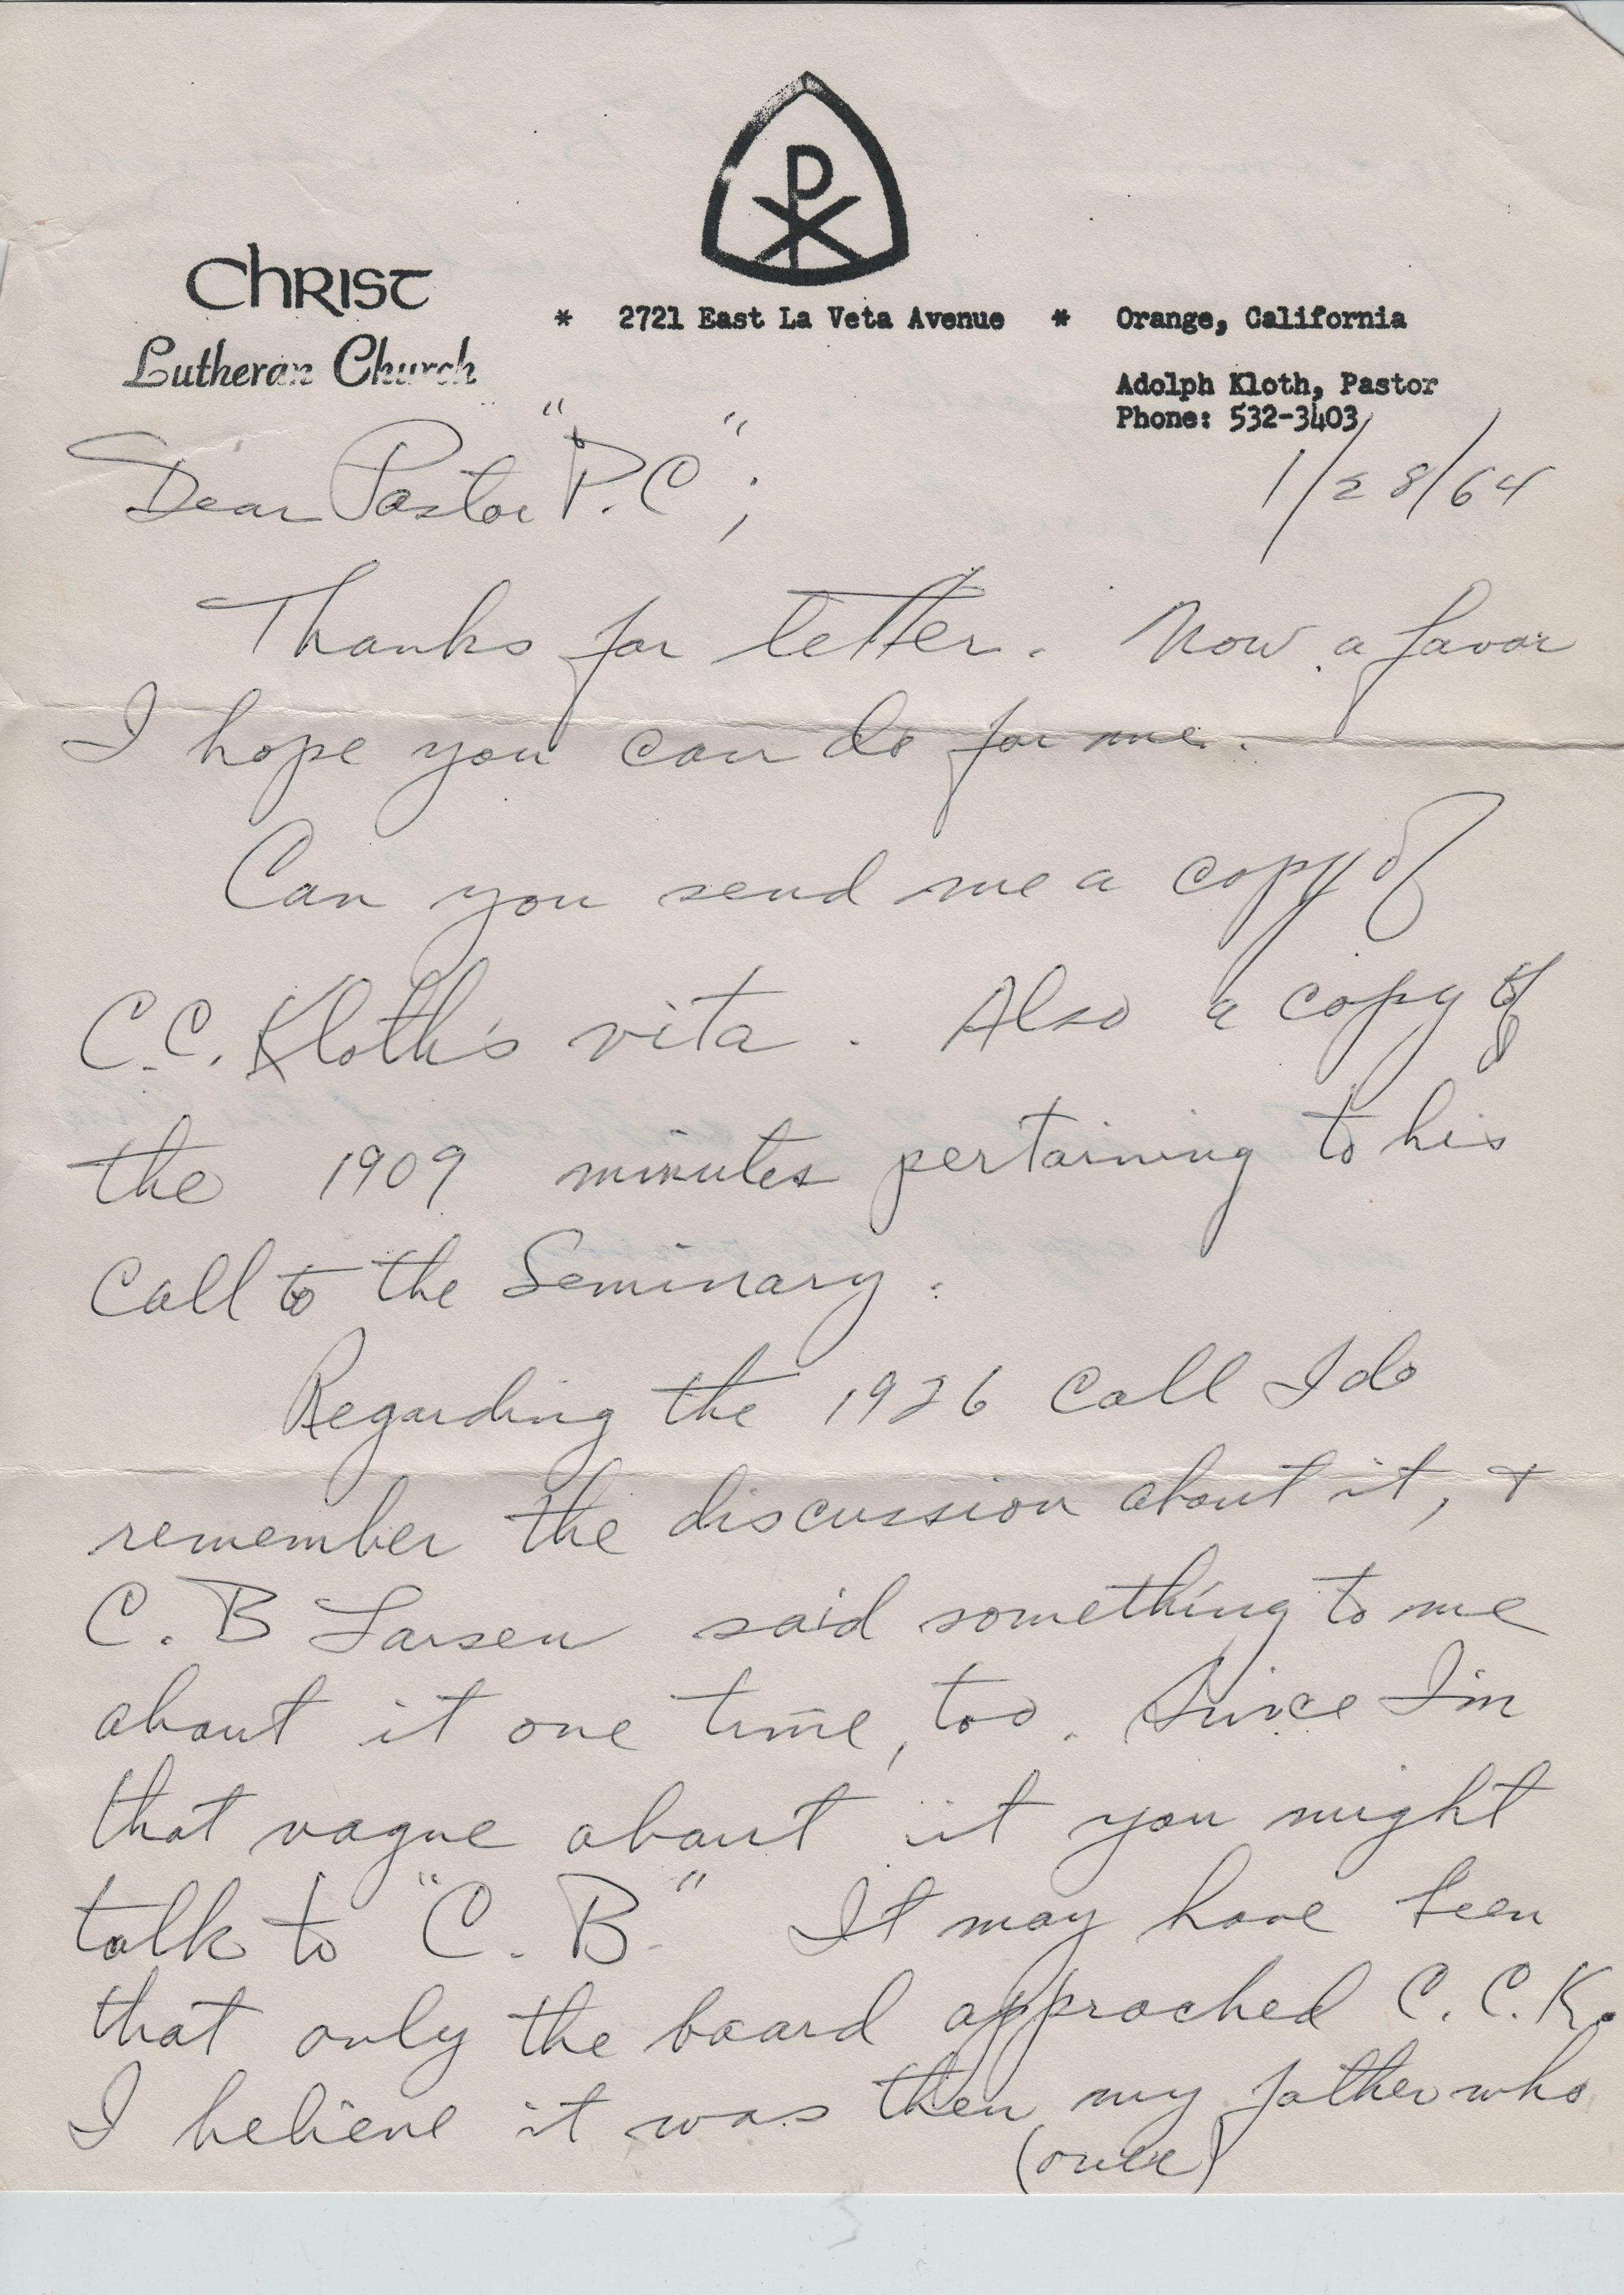 Christ
Lutheran Church
* 2721 East La Veta Avenue * Orange, California
Adolph Kloth, Pastor
Phone: 532-3403
1/28/64
Dear Pastor "P.C";
Thanks for letter. Now a favor
I hope you can do for me.
Can you send me a copy of
C.C. Kloth's vita. Also a copy of
the 1909 minutes pertaining to his
Call to the Seminary.
Regarding the 1926 Call I do
remember the discussion about it, +
C. B Larsen said something to me
about it one time, too. Since I'm
that vague about it you might
talk to "C. B." It may have been
that only the board approached C. C. K.
I believe it was then my father who
(over)